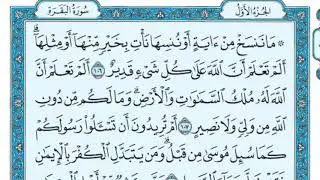 الجُزْءُ الأَوَّلُ سُورَةُ البَقَرَةِ
* مَا نَنسَخْ مِنْ ءَايَةٍ أَوْ نُنسِهَا نَأْتِ بِخَيْرٍ مِّنْهَا أَوْ مِثْلِهَا ۗ
أَلَمْ تَعْلَمْ أَنَّ ٱللَّهَ عَلَىٰ كُلِّ شَىْءٍ قَدِيرٌ ١٠٦ أَلَمْ تَعْلَمْ أَنَّ
ٱللَّهَ لَهُۥ مُلْكُ ٱلسَّمَٰوَٰتِ وَٱلْأَرْضِ ۗ وَمَا لَكُم مِّن دُونِ
ٱللَّهِ مِن وَلِىٍّ وَلَا نَصِيرٍ ١٠٧ أَمْ تُرِيدُونَ أَن تَسْـَٔلُوا۟ رَسُولَكُمْ
كَمَا سُئِلَ مُوسَىٰ مِن قَبْلُ ۗ وَمَن يَتَبَدَّلِ ٱلْكُفْرَ بِٱلْإِيمَٰنِ